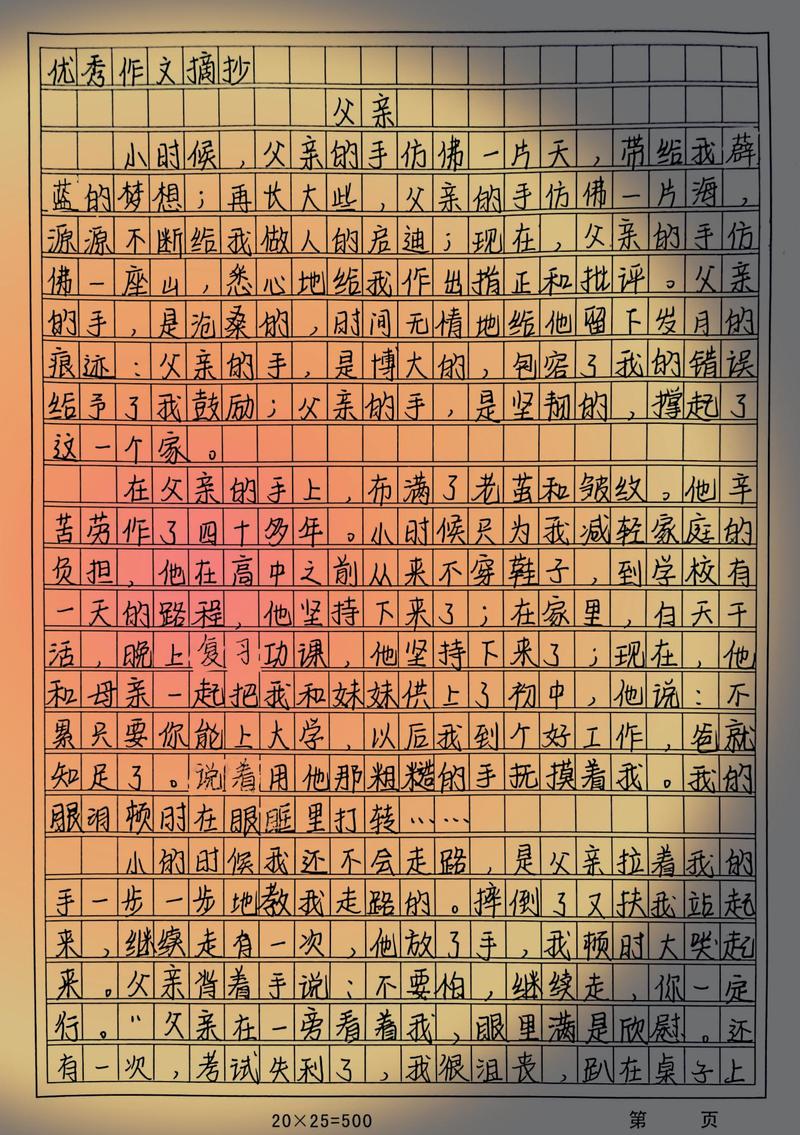 优秀作文摘抄
父亲
小时候，父亲的手仿佛一片天，带给我薜
蓝的梦想；再长大些，父亲的手仿佛一片海，
源源不断给我做人的启迪；现在，父亲的手仿
佛一座山，悉心地给我作出指正和批评。父亲
的手，是沧桑的，时间无情地给他留下岁月的
痕迹：父亲的手，是博大的，包容了我的错误
给予了我鼓励；父亲的手，是坚韧的，撑起了
这一个家。
在父亲的手上，布满了老茧和皱纹。他辛
苦劳作了四十多年。小时候只为我减轻家庭的
负担，他在高中之前从来不穿鞋子，到学校有
一天的路程，他坚持下来了；在家里，白天干
活，晚上复习功课，他坚持下来了；现在，他
和母亲一起把我和妹妹供上了初中，他说：不
累只要你能上大学，以后我到个好工作，爸就
知足了。说着用他那粗糙的手抚摸着我。我的
眼泪顿时在眼眶里打转……
小的时候我还不会走路，是父亲拉着我的
手一步一步地教我走路的。摔倒了又扶我站起
来，继续走有一次，他放了手，我顿时大哭起
来。父亲背着手说：不要怕，继续走，你一定
行。"父亲在一旁看着我，眼里满是欣慰。还
有一次，考试失利了，我很沮丧，趴在桌子上
20×25=500
第 页